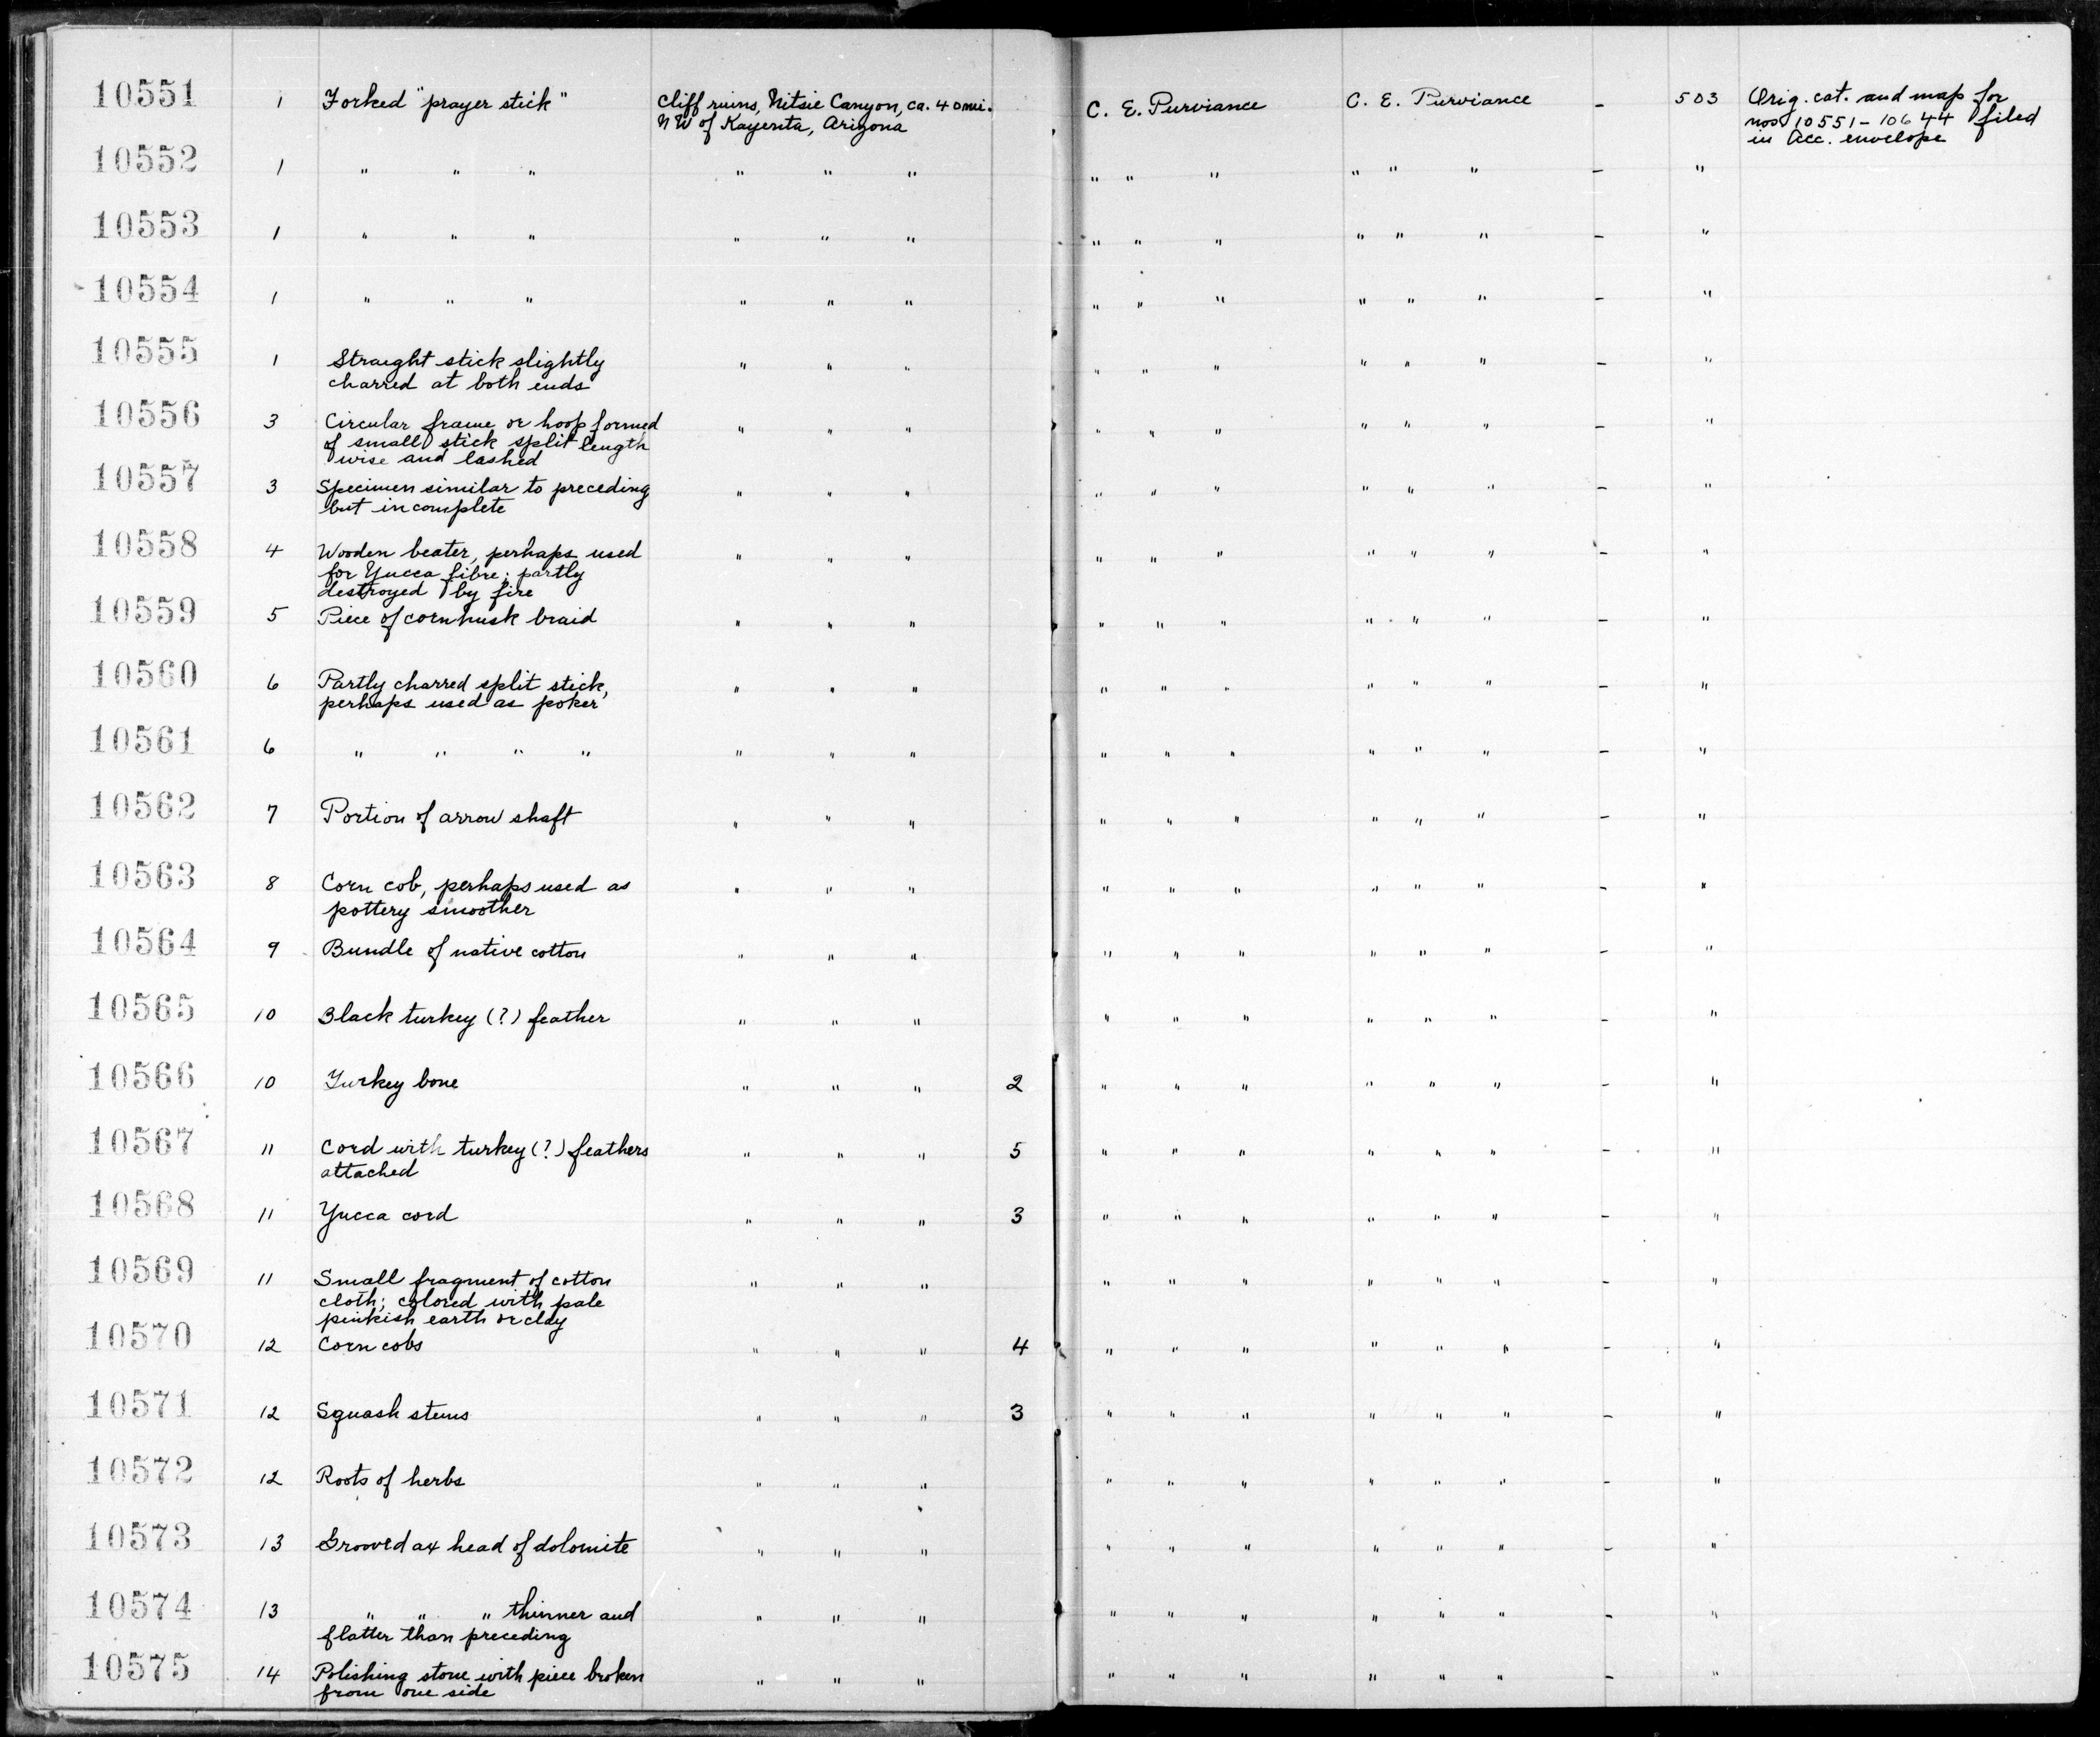 10551 1 Forked "prayer stick" Cliff ruins, Nitsie Canyon, ca. 40 mi. C. E. Purviance C. E. Purviance – 503 Orig. cat. and map for
NW of Kayenta, Arizona nos 10551-10644 filed
in Acc. envelope
10552 1 " " " " " " " " " " " " – "
10553 1 " " " " " " " " " " " " – "
10554 1 " " " " " " " " " " " " – "
10555 1 Straight stick slightly " " " " " " " " " – "
charred at both ends
10556 3 Circular frame or hoop formed " " " " " " " " " – "
of small stick split length
wise and lashed
10557 3 Specimen similar to preceding " " " " " " " " " – "
but incomplete
10558 4 Wooden beater, perhaps used " " " " " " " " " – "
for Yucca fibre; partly
destroyed by fire
10559 5 Piece of cornhusk braid " " " " " " " " " – "
10560 6 Partly charred split stick, " " " " " " " " " – "
perhaps used as poker
10561 6 " " " " " " " " " " " " " – "
10562 7 Portion of arrow shaft " " " " " " " " " – "
10563 8 Corn cob, perhaps used as " " " " " " " " " – "
pottery smoother
10564 9 Bundle of native cotton " " " " " " " " " – "
10565 10 Black turkey (?) feather " " " " " " " " " – "
10566 10 Turkey bone " " " 2 " " " " " " – "
10567 11 Cord with turkey (?) feathers " " " 5 " " " " " " – "
attached
10568 11 Yucca cord " " " 3 " " " " " " – "
10569 11 Small fragment of cotton " " " " " " " " " – "
cloth; colored with pale
pinkish earth or clay
10570 12 Corn cobs " " " 4 " " " " " " – "
10571 12 Squash stems " " " 3 " " " " " " – "
10572 12 Roots of herbs " " " " " " " " " – "
10573 13 Grooved ax head of dolomite " " " " " " " " " – "
10574 13 " " " thinner and " " " " " " " " " – "
flatter than preceding
10575 14 Polishing stone with piece broken " " " " " " " " " – "
from one side